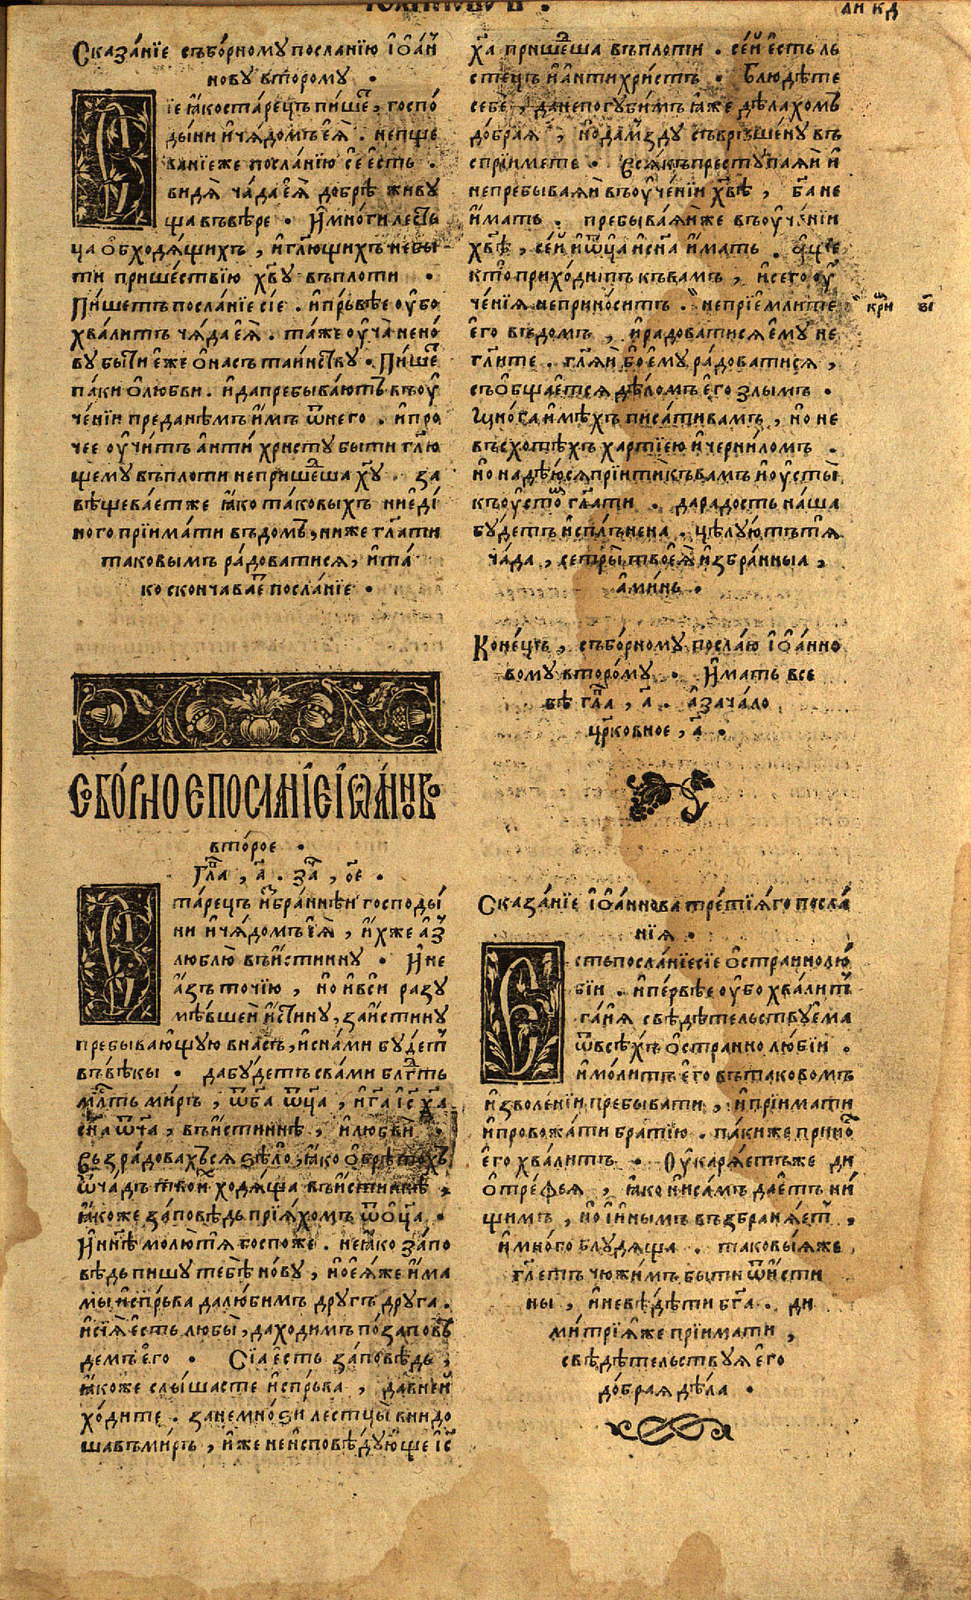 Сказанїе съборному посланїю іѡан
нову второму .
Сїе ꙗко старецъ пишеⷮ, госпо
дыни и чядомъ еꙗ . непще
ванїе же посланїю се есть .
видя чада еꙗ добрѣ живу
ща въ вѣре . И многи лесть
ца обходящихъ , и глющихъ не бы
ти пришествїю хв҃у въ плоти .
Пишетъ посланїе сїе . и прьвѣе оубо
хвалитъ чяда еꙗ . таже оуча не но
ву быти еже о насъ таинству . Пишеⷮ
паки о любви . и да пребываютъ въ оу
ченїи преданѣмъ имъ ѿ него . и про
чее оучитъ антихристу быти глю
щему въ плоти не пришеⷣша хⷭ҇у . за
вѣщевает же ꙗко таковыхъ ни еди
ного прїимати въ домъ, ниже глати
таковымъ радоватися, и та
ко скончаваеⷮ посланїе .
СЪБОРНОЕ ПОСЛАНЇЕ ІѠАННОВО
второе .
Глаⷡ , а҃ . заⷱ , о҃е .
Старецъ избраннѣи господы
ни и чядомъ еꙗ , ихже аз
люблю въ истинну . И не
азъ точїю , но и вси разу
мѣвшеи истину, за истину
пребывающую в насъ, и с нами будетъ
въ вѣкы . да будетъ с вами блгⷣть
млⷭть миръ , ѿ ба ѿца , и га іс ха
сна ѿча , въ истиннѣ , и любви .
Възрадовахъся зѣло, ꙗко обрѣтохъ
ѿ чадъ твоиⷯ ходяща въ истиннѣ ,
ꙗкоже заповѣдь прїяхомъ ѿ оца .
И ннѣ молютя госпоже . не ꙗко запо
вѣдь пишу тебѣ нову , но еяже има
мы испрьва да любимъ другъ друга .
и сїꙗ есть любы, да ходимъ по запов
демъ его . Сїа есть заповѣдь ,
ꙗкоже слышасте испрьва , да в ней
ходите . зане мноѕи лестцы внидо
ша въ миръ , иже не исповѣдующе іс
ха пришеⷣша въ плоти . сей есть ль
стець и антихристъ . Блюдѣте
себе , да не погубимъ ꙗже дѣлахомъ
добрая , но да мзду съврьшену въ
спрїимете . Всякъ преступаяи и
не пребываяи въ оученїи хвѣ , ба не
имать . пребываяй же въ оученїи
хвѣ , сей и ѿца и сна имать . аще
кто приходитъ къ вамъ , и сего оу
ченїя не приноситъ . не прїемлите
его въ домъ , и радоватися ему не
глите . гляй бо ему радоватися ,
съобщается дѣломъ его злымъ .
Многа имѣхъ писати вамъ , но не
въсхотѣхъ хартїею и чернїломъ .
но надѣюся прїити къ вамъ и оусты
къ оустоⷨ глати . да радость наша
будетъ исплънена . цѣлуютъ тя
чада , сестры твоеꙗ избранныа ,
аминь .
Конець , съборному послаю іѡанно
вому второму . Имать все
въ глⷡа , а҃ . а зачало
црковное , а҃ .
Сказанїе іѡаннова третїяго посла
нїя .
Есть посланїе сїе о страннолю
бїи . и първѣе оубо хвалитъ
гаїя свѣдѣтельствуема
ѿ всѣхъ о страннолюбїи .
и молитъ его въ таковомъ
изволенїи пребывати , и прїимати
и провожати братїю . паки же приноⷭ
его хвалитъ . Оукаряетъ же ди
отрефея , ꙗко ни самъ даетъ ни
щимъ , но и инымъ възбраняетъ ,
и много блудяща . таковыя же
глетъ чюжимъ быти ѿ исти
ны , и не вѣдѣти бга . ди
митрїя же прїимати ,
свѣдѣтельствуя его
добрая дѣла .